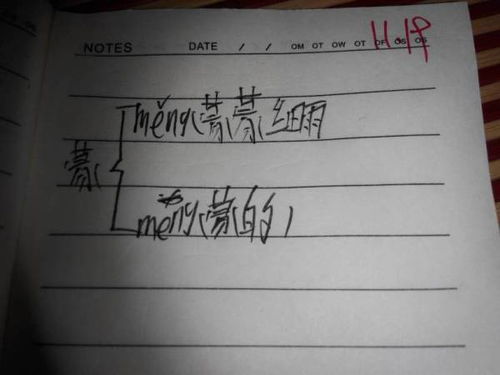 NOTES DATE / / OM OT OW OT OF OS OS 11.19
měng(蒙蒙细雨
蒙
mēng(蒙的)